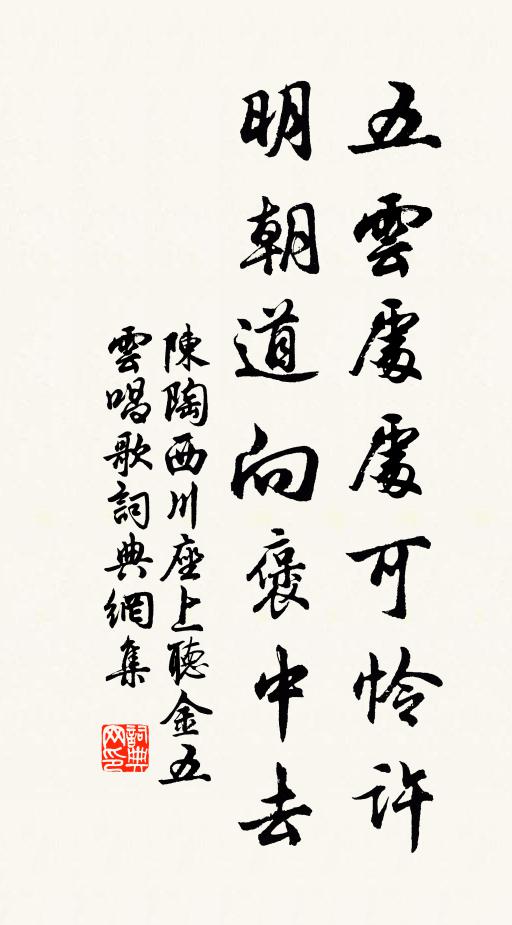 五雲處處可憐許
明朝道向褒中去
陳陶西川座上聽金五
雲唱歌詞典網集
詞典网印